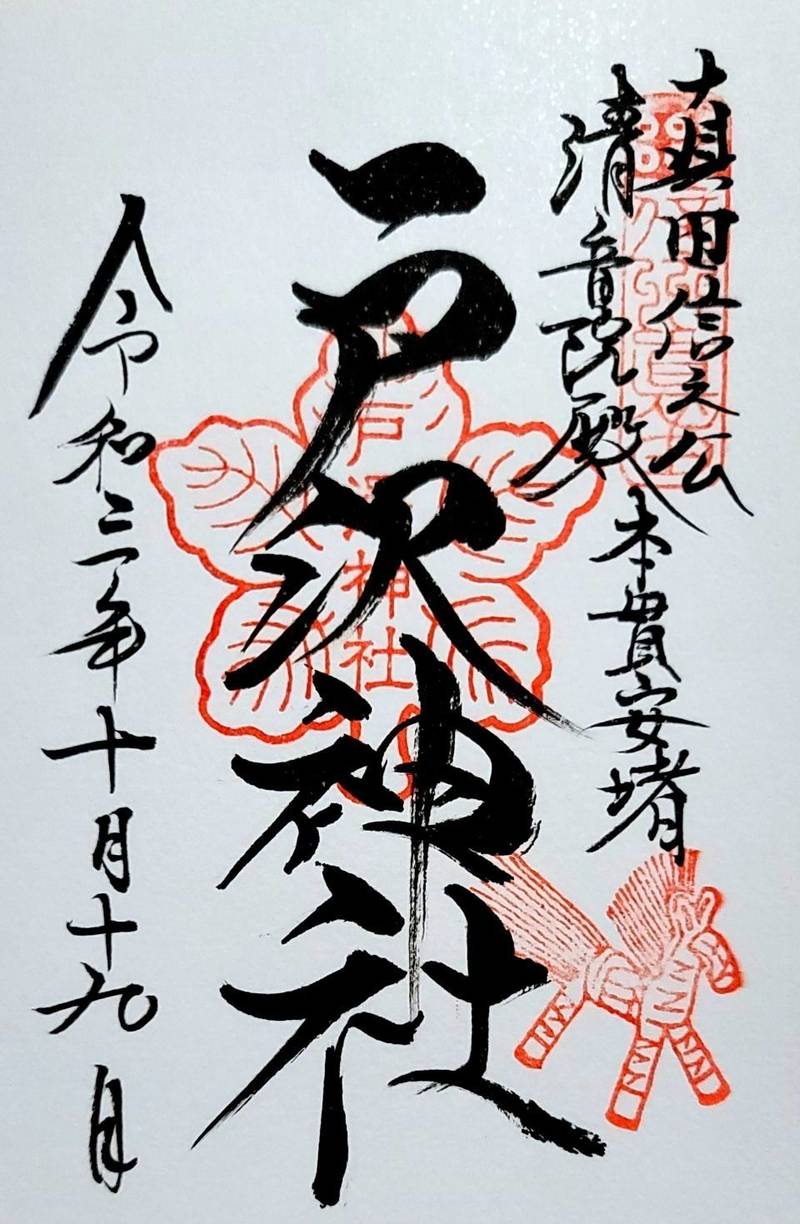 眞田信之公
清音院殿
本貫安堵
戸沢神社
戸澤神社
令和三年十月十九日